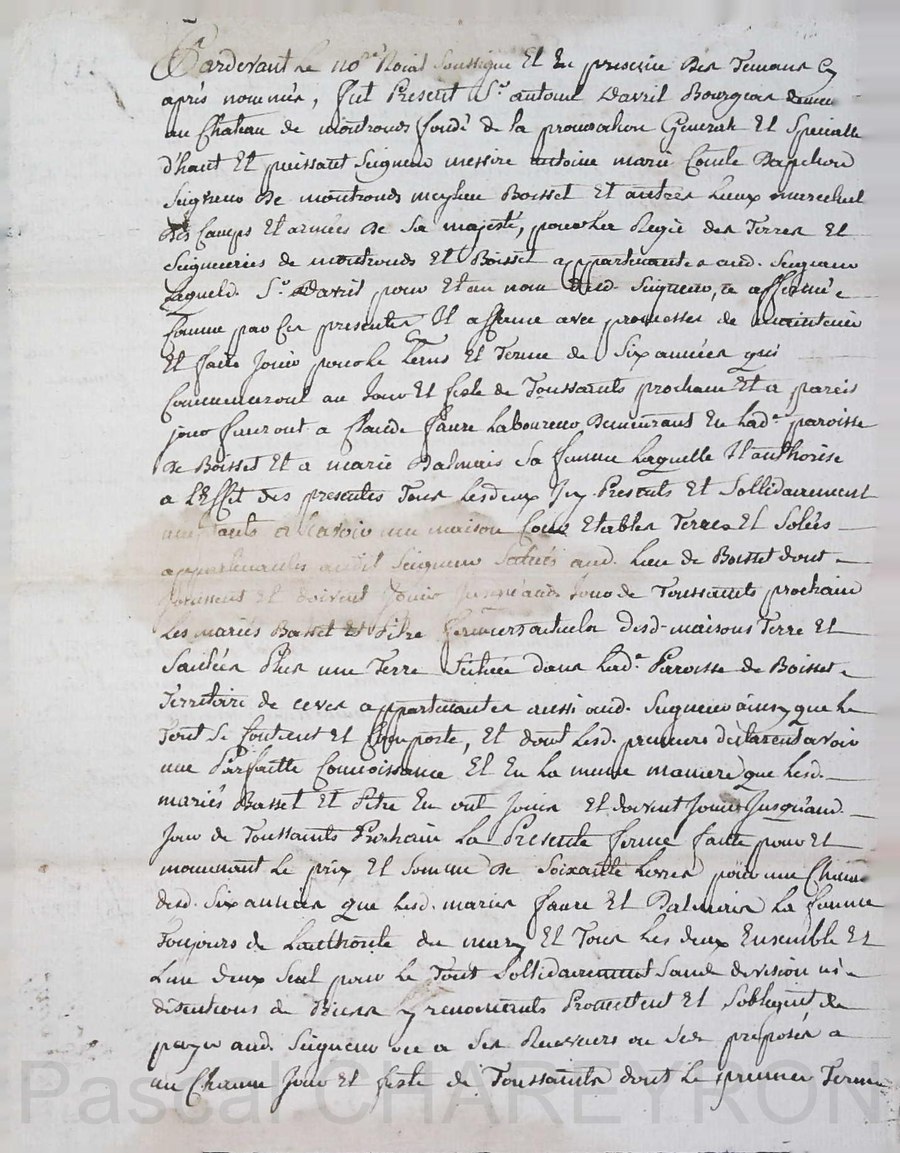 Pardevant Le no.re Roial Soussigné Et En presence des Temoins Cy
aprés nommés, fut Present S.r antoine Davril Bourgeois
au Chateau de montrond fondé de la procuration Generale Et Specialle
d'haut Et puissant Seigneur messire antoine marie Comte Dapchon
Seigneur De montrond meylieu Boisset Et autres Lieux marechal
Des Camps Et armées De Sa majesté, pour La Regie des Terres Et
Seigneuries de montrond Et Boisset appartenantes aud. Seigneur
Lequel d. S.r Davril pour Et au nom dud. Seigneur, a affermé
Comme par Ces presentes Il afferme avec promesses de maintenir
Et faire Jouir pour Le Tems Et Terme de Six années qui
Commenceront au Jour Et feste de Toussaints prochain Et a pareil
jour finiront a Claude faure Laboureur Demeurant En Lad.e paroisse
de Boisset Et a marie Dalmais Sa femme Laquelle Il authorise
a L'Effet des presentes Tous Lesdeux Icy Presents Et Sollidairement
a Scavoir une maison Cour Etables Terres Et
appartenantes audit Seigneur Scitués aud. Lieu de Boisset dont
Jouissent Et doivent Jouir Jusqu'aud. Jour de Toussaints prochain
Les mariés Basset Et Pitre fermiers actuels desd. maisons Terre Et
Plus une Terre Scituée dans Lad.e Paroisse de Boisset
Territoire de appartenantes aussi aud. Seigneur ainsy que Le
Tout Se Contient Et Comporte, Et dont Lesd. preneurs déclarent avoir
une Parfaitte Connoissance Et En La meme maniere que Lesd.
mariés Basset Et Pitre En ont Jouis Et doivent Jouir Jusqu'aud.
Jour de Toussaints Prochain La Presente ferme faite pour Et
moienant Le prix Et Somme de Soixante Livres pour une Chacune
desd. Six années que Lesd. mariés faure Et Dalmais La femme
Toujours de Lauthorité du mary Et Tous Les deux Ensemble Et
Lun deux Seul pour Le Tout Sollidairement Sans division ni
discutions de Biens y renoncants Promettent Et Sobligent de
payer aud. Seigneur ou a Ses Receveurs ou Ses preposés a
un Chacun Jour Et feste de Toussaints dont Le premier Terme
Pascal CHAREYRON